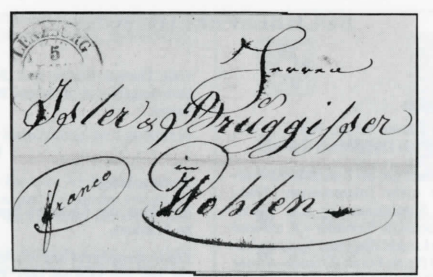 LENZBURG
5
Herren
Isler & Bruggisser
in
Wohlen
franco